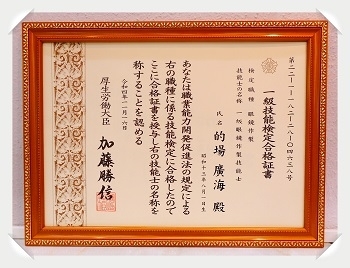 第二二-一-一八二-二八-一〇四六三八号
一級技能検定合格証書
検定職種 眼鏡作製
技能士の名称 一級眼鏡作製技能士
氏名 的場 廣海 殿
昭和十三年八月一日生
あなたは職業能力開発促進法の規定による
右の職種に係る技能検定に合格したので
ここに合格証書を授与し右の技能士の名称を
称することを認める
令和四年一二月一六日
厚生労働大臣 加藤勝信